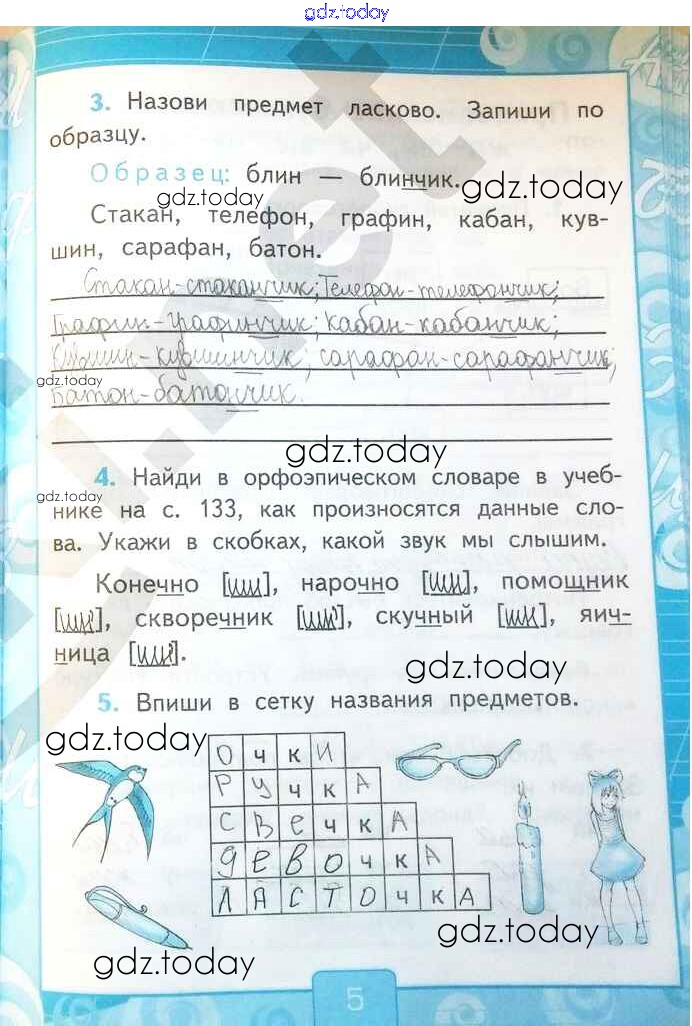 gdz.today
3. Назови предмет ласково. Запиши по
образцу.
Образец: блин — блинчик.
gdz.today gdz.today
Стакан, телефон, графин, кабан, кув-
шин, сарафан, батон.
Стакан-стаканчик; Телефон-телефончик;
Графин-графинчик; Кабан-кабанчик;
Кувшин-кувшинчик; сарафан-сарафанчик;
gdz.today
Батон-батончик.
gdz.today
4. Найди в орфоэпическом словаре в учеб-
gdz.today
нике на с. 133, как произносятся данные сло-
ва. Укажи в скобках, какой звук мы слышим.
Конечно [ш], нарочно [ш], помощник
[ш], скворечник [ш], скучный [ш], яич-
ница [ш].
gdz.today
5. Впиши в сетку названия предметов.
gdz.today
Очки
Ручка
Свечка
девочка
Ласточка
gdz.today
gdz.today
5